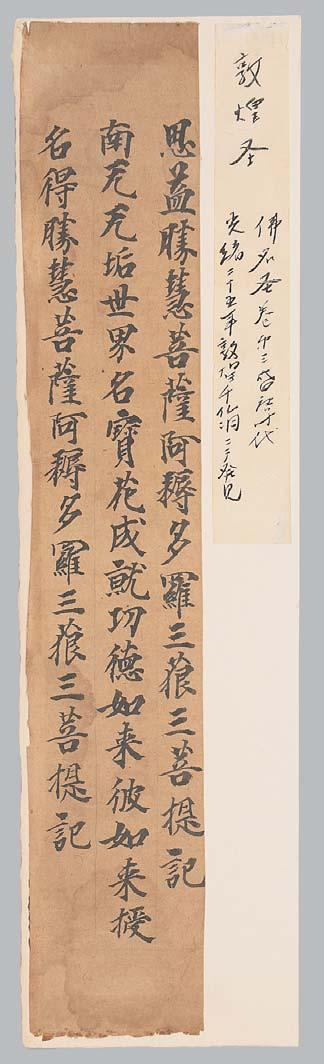 敦煌圣
佛名圣卷
光緒二十五年敦煌千仏洞ニテ発見
思益勝慧菩薩阿耨多羅三藐三菩提記
南无无垢世界名寶花成就功德如来彼如来授
名得勝慧菩薩阿耨多羅三藐三菩提記